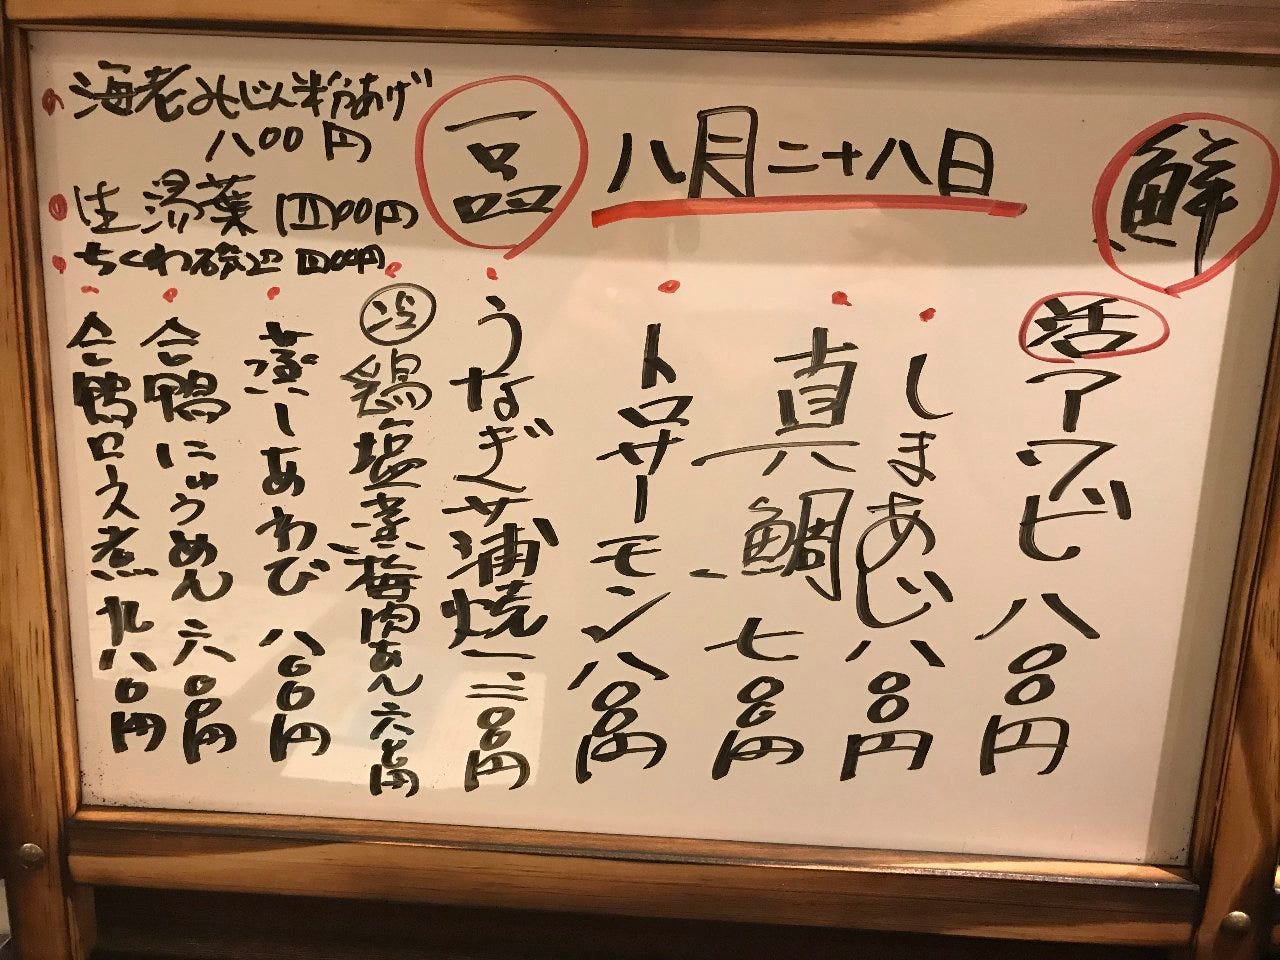 八月二十八日
鮮
活アワビ 八〇〇円
しまあじ 八〇〇円
真鯛 七〇〇円
トロサーモン 八〇〇円
一品
うなぎ 蒲焼 一二〇〇円
冷 鶏塩蒸梅肉あん 六〇〇円
蒸しあわび 八〇〇円
合鴨にゅうめん 六〇〇円
合鴨ロース煮 九八〇円
海老みじん粉あげ
八〇〇円
生湯葉 四〇〇円
ちくわ磯辺 四〇〇円